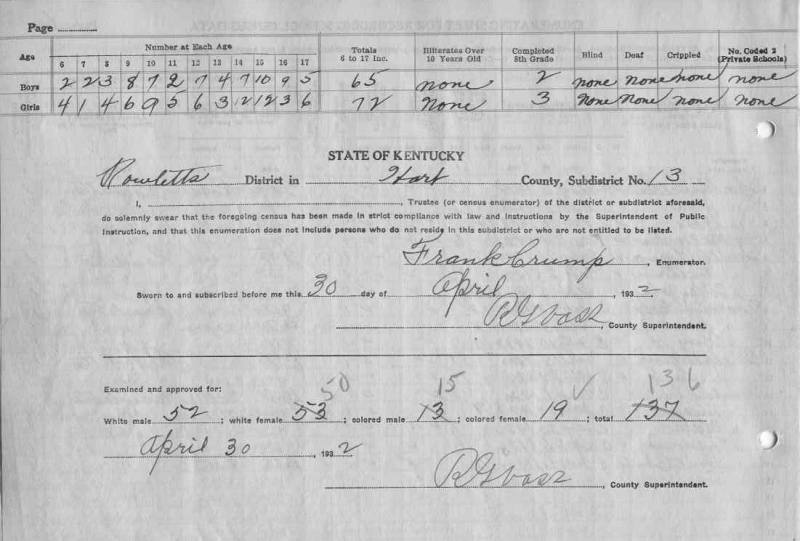 Page
Age Number at Each Age Totals 6 to 17 Inc. Illiterates Over 10 Years Old Completed 8th Grade Blind Deaf Crippled No. Coded 2 (Private Schools)
6 7 8 9 10 11 12 13 14 15 16 17
Boys 2 2 3 8 7 2 7 4 7 10 9 5 65 none 2 none none none none
Girls 4 1 4 6 9 5 6 3 12 12 3 6 72 none 3 none none none none
STATE OF KENTUCKY
Rowletts District in Hart County, Subdistrict No. 13
I, , Trustee (or census enumerator) of the district or subdistrict aforesaid,
do solemnly swear that the foregoing census has been made in strict compliance with law and instructions by the Superintendent of Public
Instruction, and that this enumeration does not include persons who do not reside in this subdistrict or who are not entitled to be listed.
Frank Crump, Enumerator.
Sworn to and subscribed before me this 30 day of April, 1932
, County Superintendent.
Examined and approved for:
50 15 136
White male 52; white female 53; colored male 13; colored female 19; total 137
April 30, 1932
, County Superintendent.